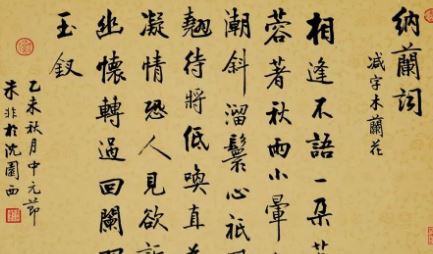 納蘭詞
减字木蘭花
相逢不語一朵芙
蓉著秋雨小暈
潮斜溜鬟心祇
翹待將低喚直為
凝情恐人見欲訴
幽懷轉過回闌
玉釵
乙未秋月中元節
非於沈園西